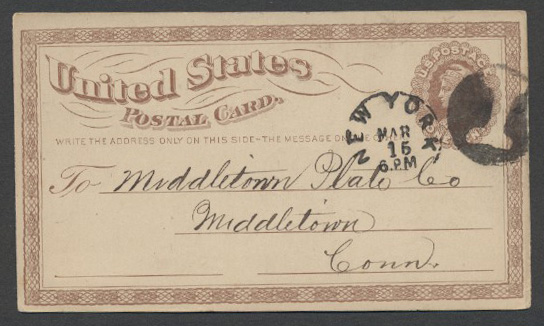 U.S. POSTA
United States
POSTAL CARD.
WRITE THE ADDRESS ONLY ON THIS SIDE-THE MESSAGE ON
NEW YORK
MAR
15
6 PM
To Middletown Plate Co
Middletown
Conn.